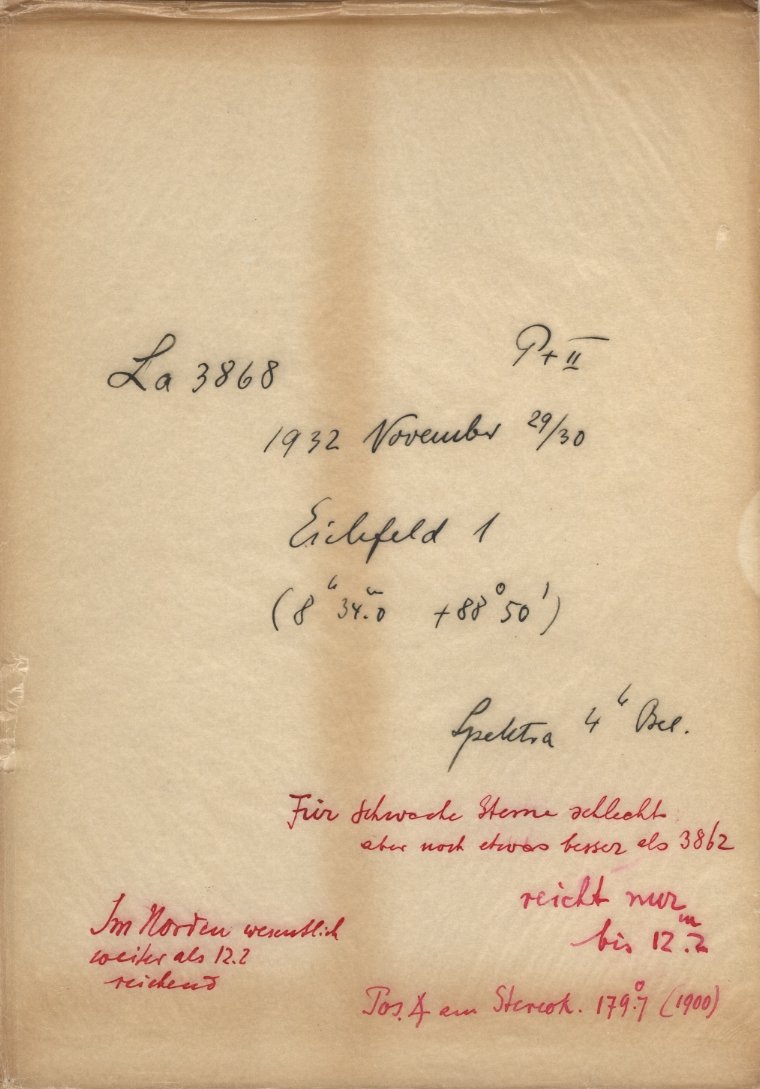 La 3868
P + II
1932 November 29/30
Eichfeld 1
(8ʰ 34ᵐ.0 +88° 50')
Spektra 4ʰ Bel.
Für schwache Sterne schlecht
aber noch etwas besser als 3862
reicht nur
bis 12ᵐ.2
Im Norden wesentlich
weiter als 12.2
reichend
Pos. ∡ am Stereok. 179°.7 (1900)